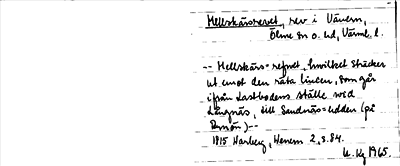 Hellskärsrevet, rev i Vänern,
Ölme sn o. hd, Värml. l.
-- Hellskärs=refvet, hwilket sträcker
ut emot den räta linien, som går
ifrån Lastbodens ställe wid
Långnäs, till Sandnäs=udden (på
--
1815 Warberg, Wenern 2, s. 84.
1965.